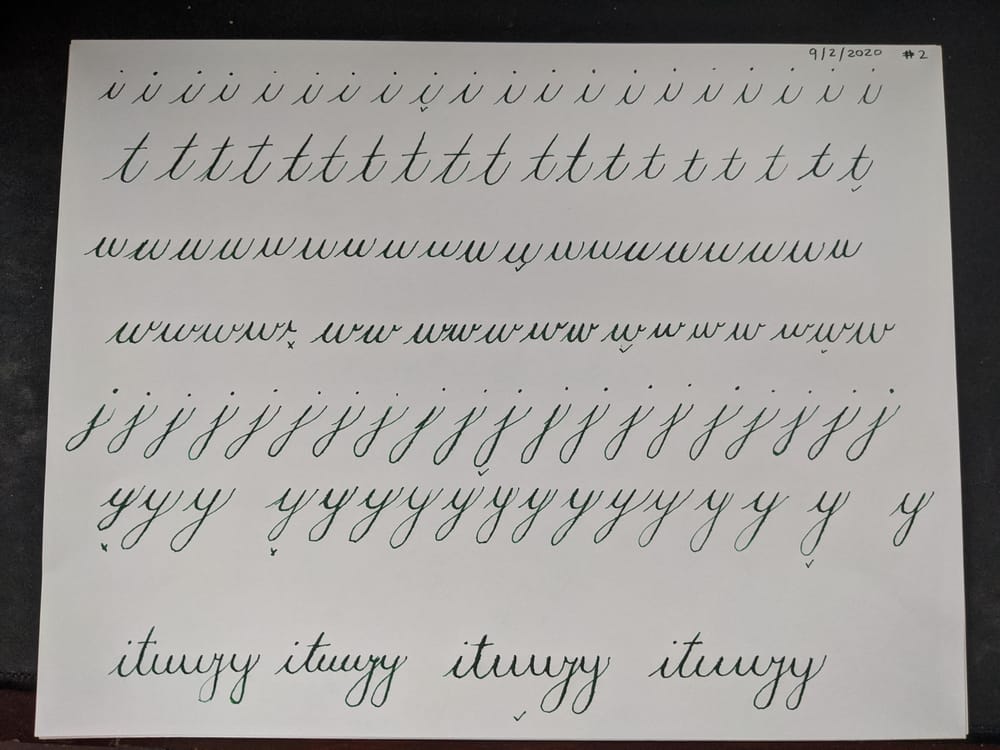 9/2/2020 #2
i i i i i i i i i i i i i i i i i i i i
t t t t t t t t t t t t t t t t t t t
u u u u u u u u u u u u u u u u u u u
w w w w w w w w w w w w w w w w w w
j j j j j j j j j j j j j j j j j j j j
y y y y y y y y y y y y y y y y y
ituwjy ituwjy ituwjy ituwjy